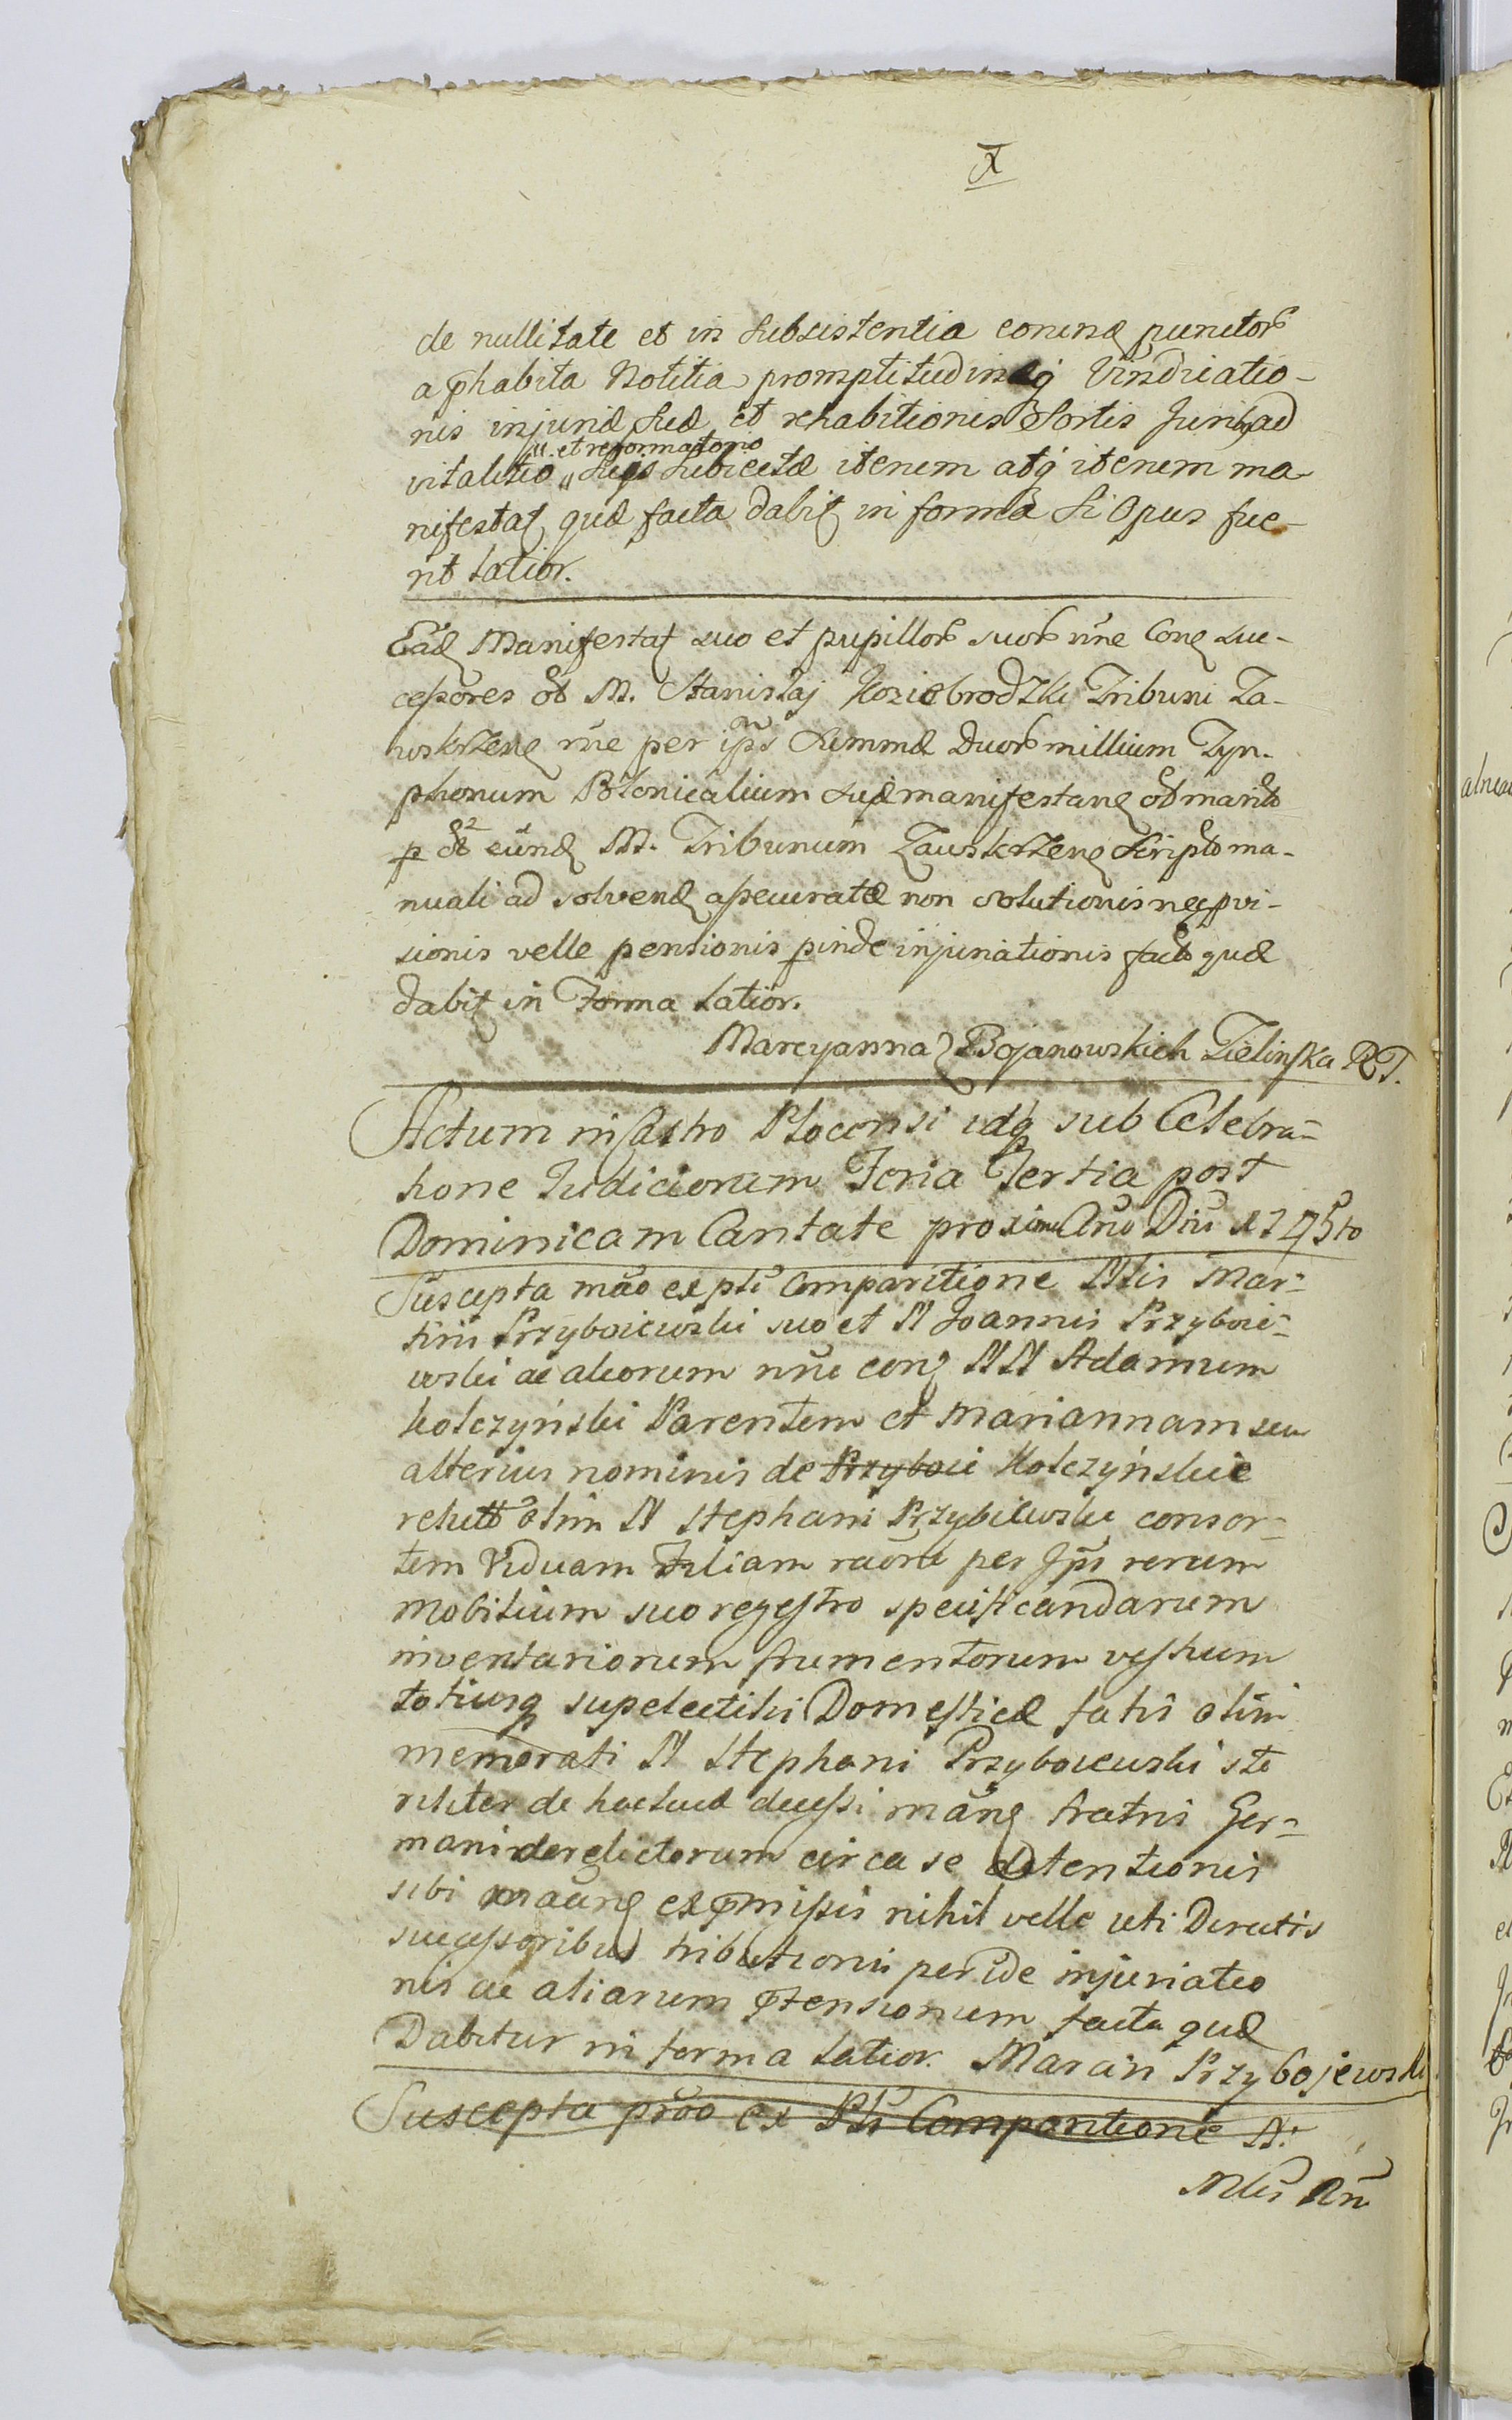 X
de nullitate et in Subsistentia eorund punctor
a phabita Notitia promptitudineq Vindicatio-
nis injuriæ suæ et rehabitionis Sortis Jurib ad
„ et reformatorio
vitalitio „ Legis Subiectæ iterum atq iterum ma-
nifestat quæ facta dabit in forma Si Opus fue-
rit latior.
Ead Manifestat suo et pupillor suor nñe Con Suc-
cessores M. Stanislaj Koziebrodzki Tribuni Za-
wskrzen rñe per ips Summæ Duor millium Tyn-
phonum Polonicalium manifestan marito
p eund M. Tribunum Zawskrzen Scripto ma-
nuali ad solvend assecuratæ non solutionis neq pvi-
sionis velle pensionis pinde injuriationis facto quæ
dabit in Forma latior.
Marcyanna z Bojanowskich Zielinska RT.
Actum in Castro Plocensi idq sub Celebra-
tione Iudiciorum Feria Tertia post
Dominicam Cantate proxima Año Dñi 1745to
Suscepta mão ex pti Comparitione Mlis Mar-
tini Przyboiewski suo et M Joannis Przyboie-
wski ac aliorum nñe con MM Adamum
Kolczyński Parentem et Mariannam seu
alterius nominis de Przyboie Kolczyńskie
relict olim M Stephani Przybiewski consor-
tem Viduam Filiam raõne per Jps rerum
mobilium suo regestro specificandarum
inventariorum frumentorum vestium
totiusq supelectilis Domesticæ fatis olim
memorati M Stephani Przyboiewski ste
riliter de hac luce decessi man fratris Ger-
mani derelictorum circa se detentionis
sibi maun ex pmissis nihil velle uti Directis
successoribus tributionis perinde injuriatio
nis ac aliarum ptensionum facta quæ
Dabitur in forma latior. Marcin Przybojewski
Suscepta prõo ex Pti Comparitione M.
Mlis An